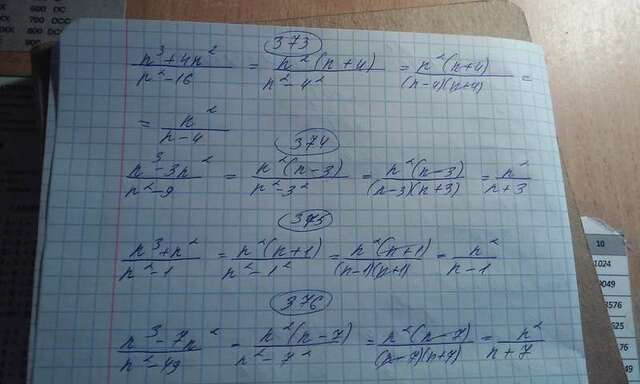 373
n³+4n²/n²-16 = n²(n+4)/n²-4² = n²(n+4)/(n-4)(n+4) =
= n²/n-4
374
n³-3n²/n²-9 = n²(n-3)/n²-3² = n²(n-3)/(n-3)(n+3) = n²/n+3
375
n³+n²/n²-1 = n²(n+1)/n²-1² = n²(n+1)/(n-1)(n+1) = n²/n-1
376
n³-7n²/n²-49 = n²(n-7)/n²-7² = n²(n-7)/(n-7)(n+7) = n²/n+7
10
1024